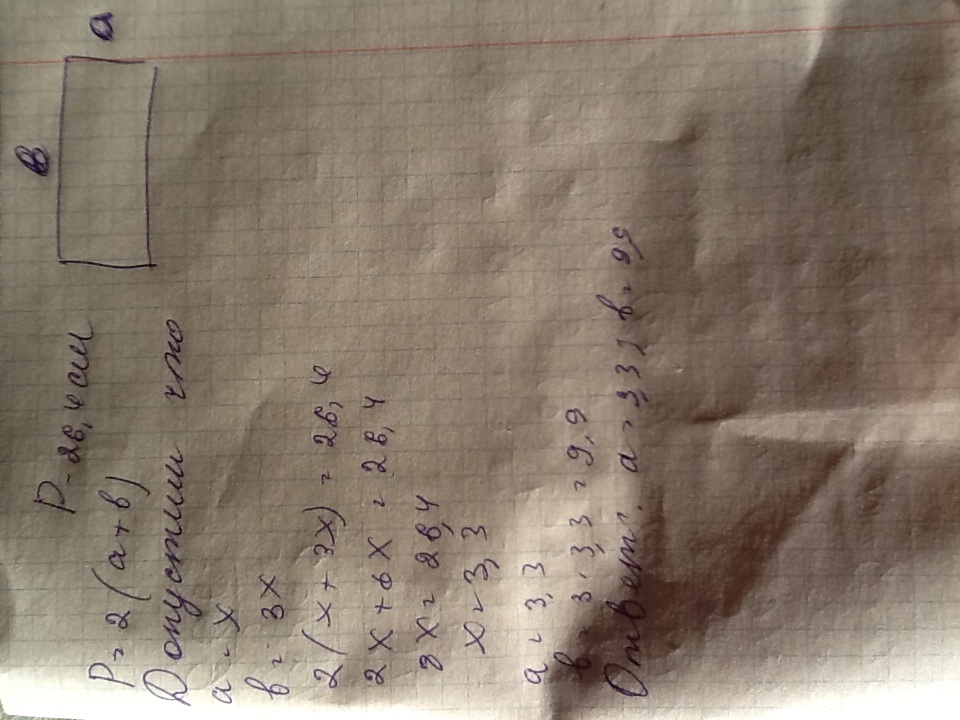 P - 26,4 см
в
a
P = 2(a+в)
Допустим что
a = x
в = 3x
2(x + 3x) = 26,4
2x + 6x = 26,4
8x = 26,4
x = 3,3
a = 3,3
в = 3·3,3 = 9,9
Ответ: a = 3,3; в = 9,9